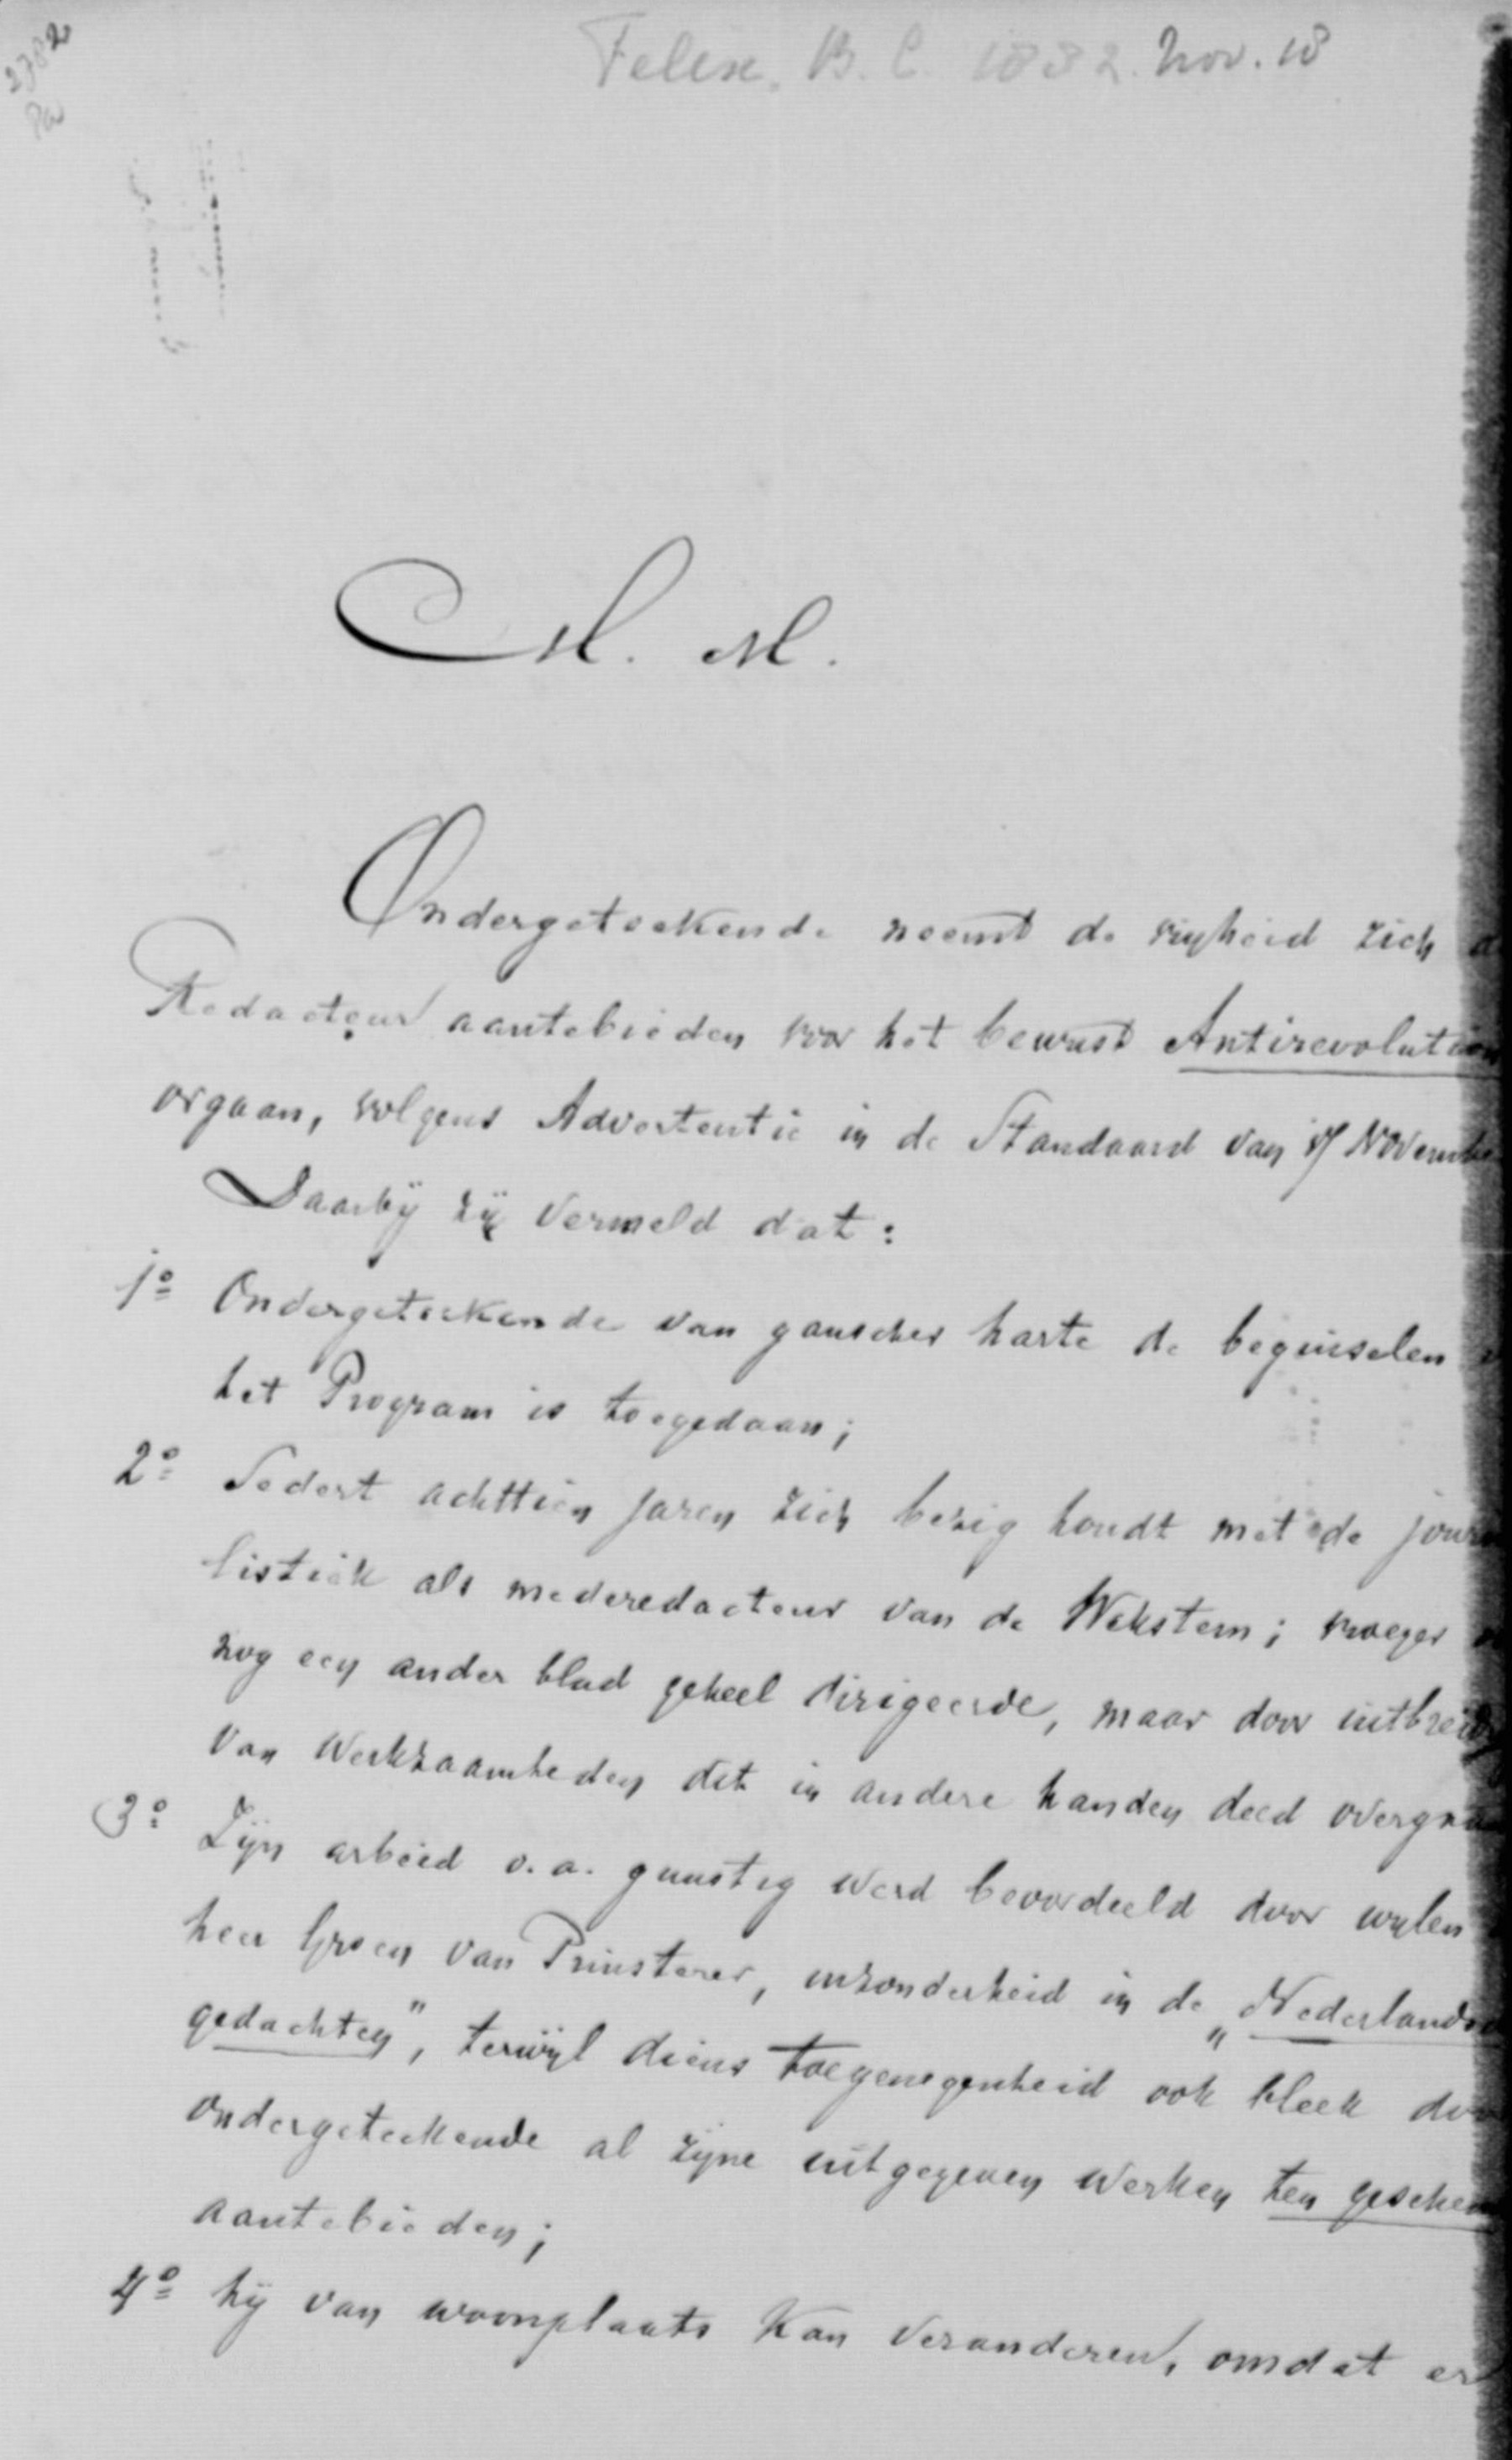 2382
Pa
Felix. B. C. 1882. Nov. 18
M. M.
Ondergeteekende neemt de vrijheid zich
Redacteur aantebieden voor het bewust Antirevolution
orgaan, volgens Advertentie in de Standaard van 17 Novembe
Daarbij zij vermeld dat:
1o Ondergeteekende van ganscher harte de beginselen
het Program is toegedaan;
2o Sedert achttien jaren zich bezig houdt met de journ
listiek als mederedacteur van de Wekstem; vroeger
nog een ander blad geheel dirigeerde, maar door uitbreid
van Werkzaamheden dit in andere handen deed overgaa
3o Zijn arbeid o.a. gunstig werd beoordeeld door wijlen
heer Groen van Prinsterer, inzonderheid in de „Nederlands
gedachten", terwijl diens toegenegenheid ook bleek doo
ondergeteekende al zijne uitgegeven Werken ten gesche
aantebieden;
4o hij van woonplaats kan veranderen, omdat er